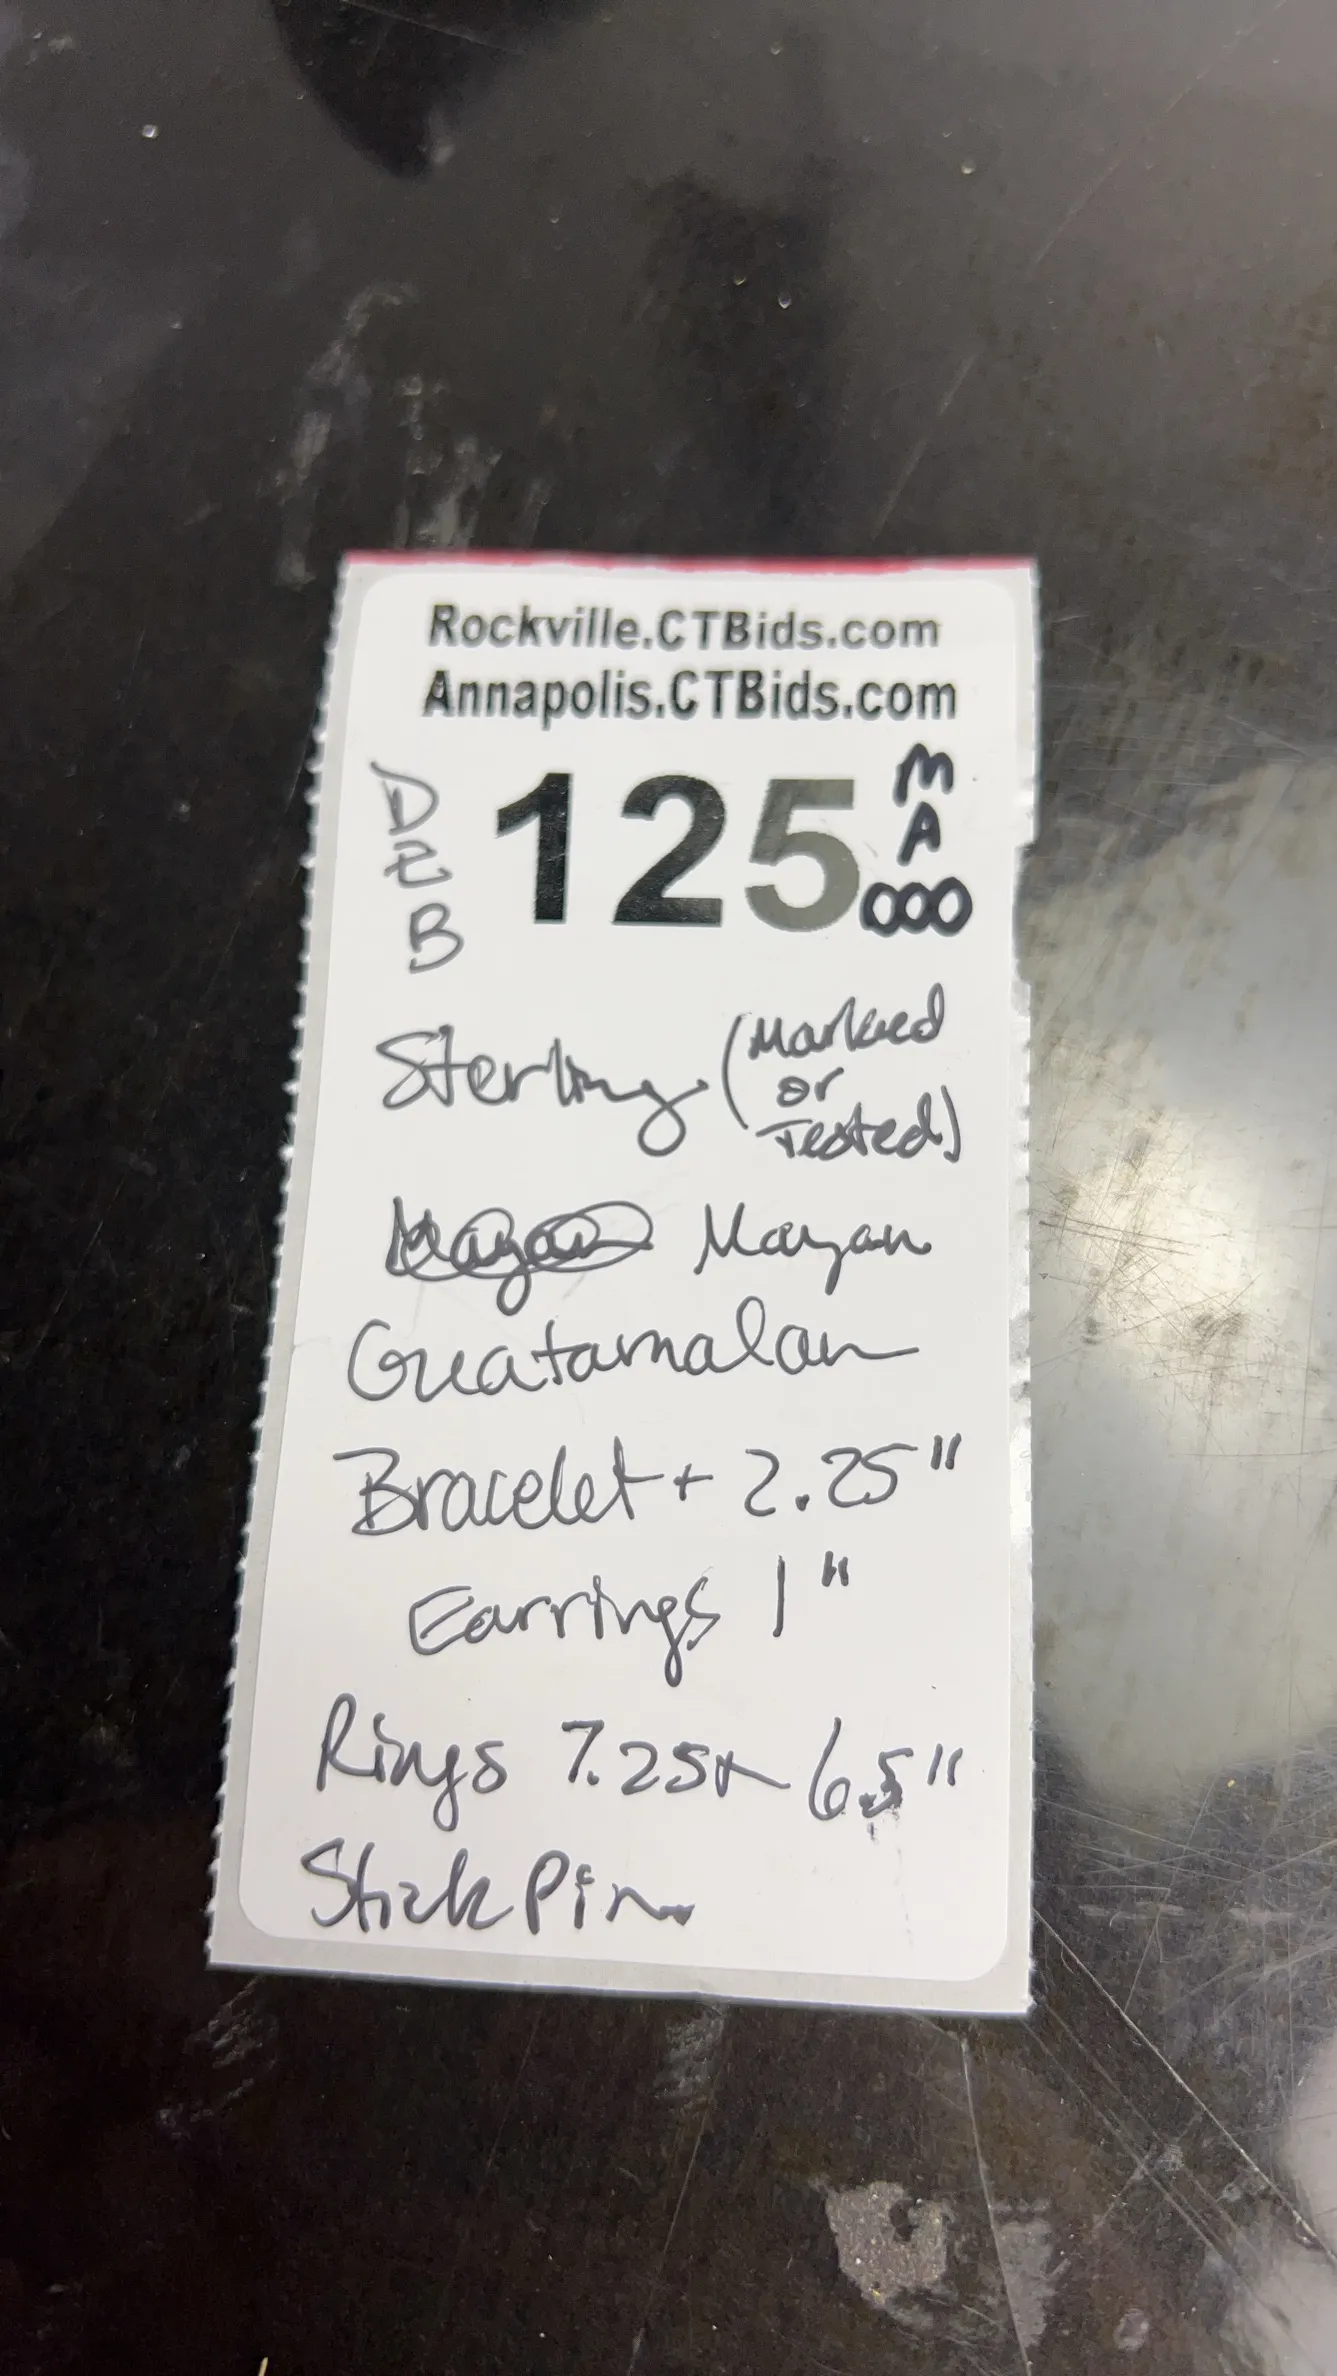 Rockville.CTBids.com
Annapolis.CTBids.com
DEB 125 MA 000
Sterling (Marked or Tested)
Mayan
Guatamalan
Bracelet + 2.25"
Earrings 1"
Rings 7.25 + 6.5"
Stick Pin